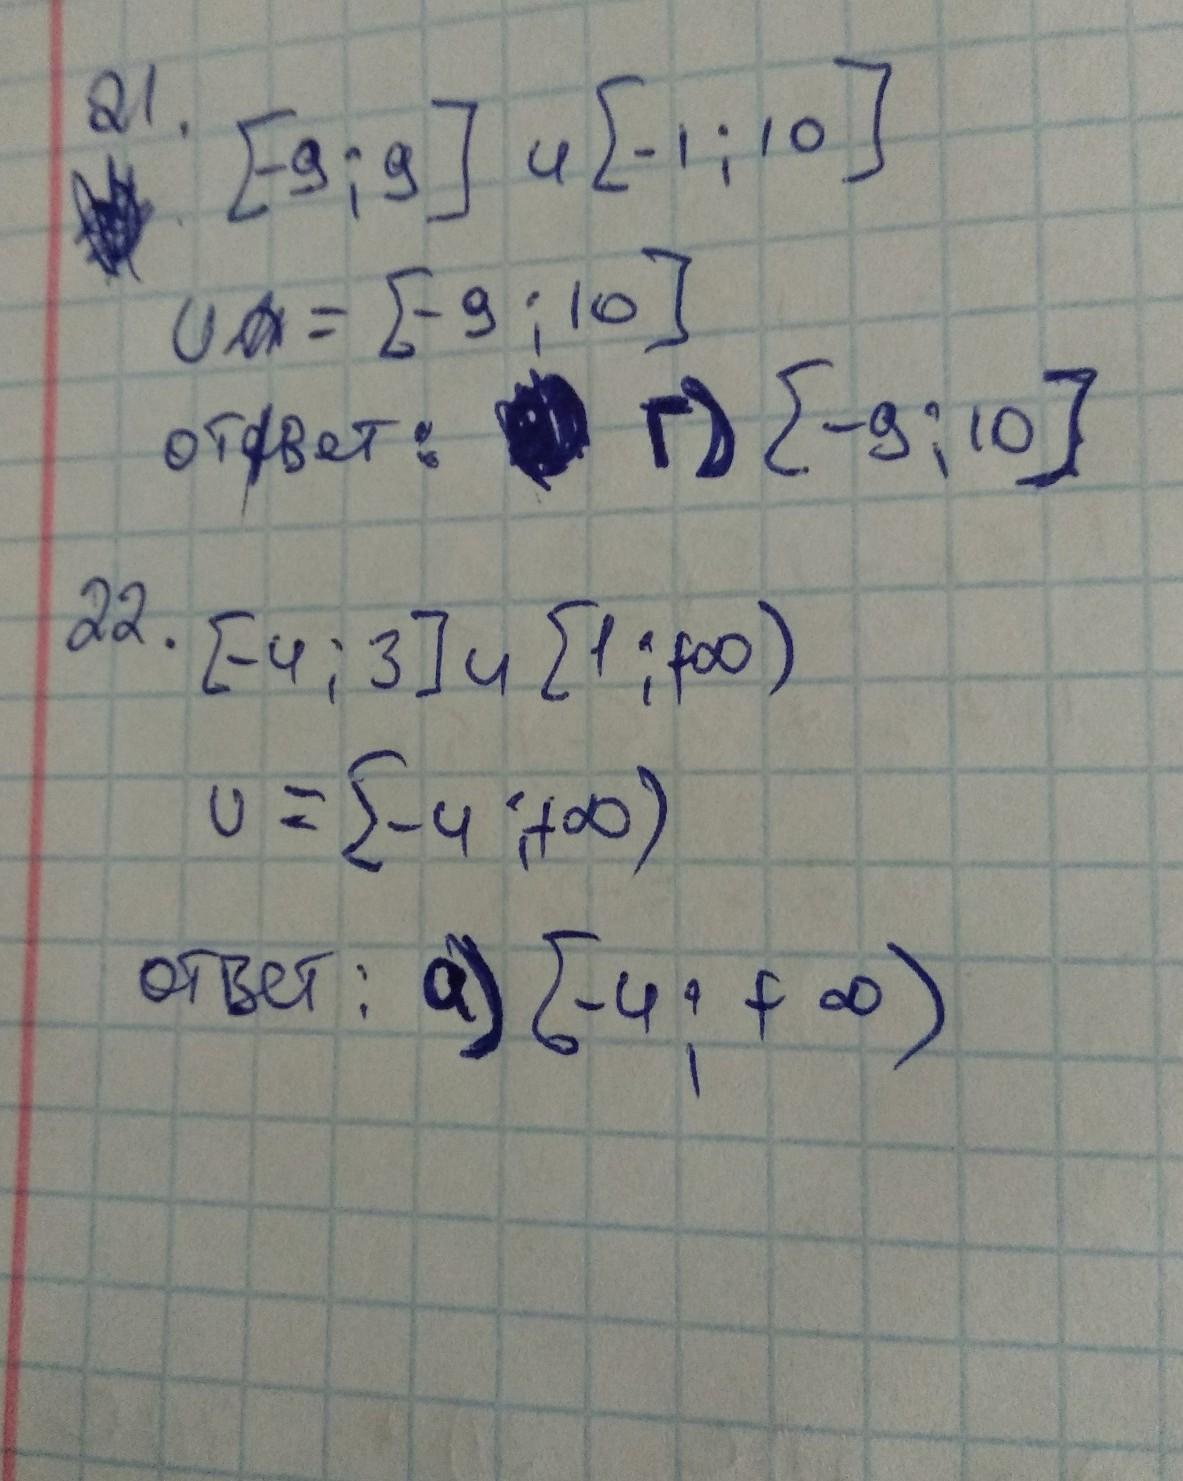 21. [-9;9] и [-1;10]
U = [-9;10]
ответ: г) [-9;10]
22. [-4;3] и [1;+∞)
U = [-4;+∞)
ответ: а) [-4;+∞)